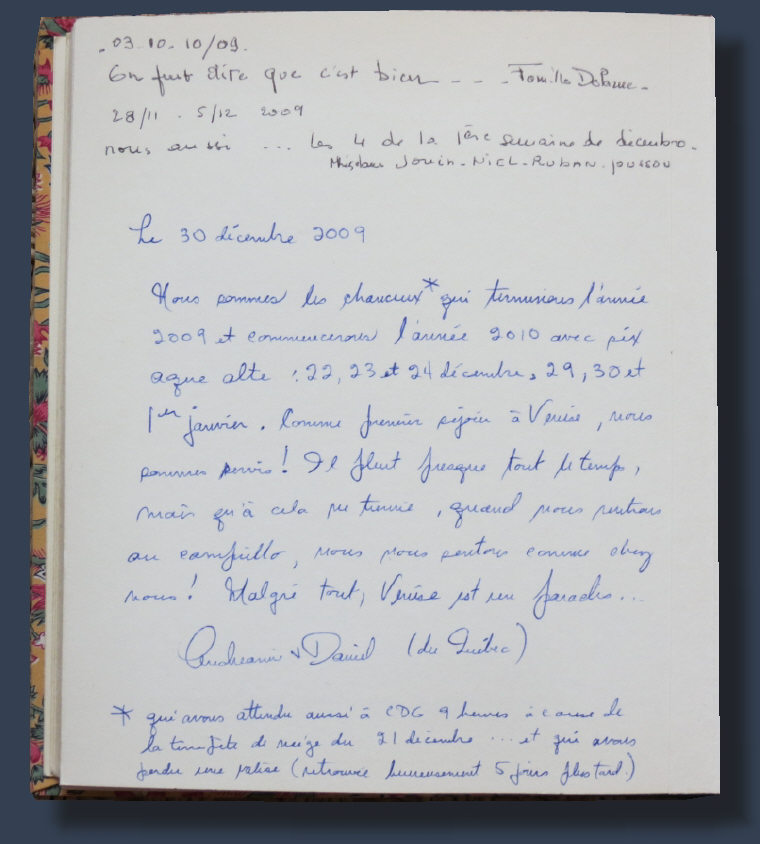 . 03.10-10/09.
On peut dire que c'est bien - - - Famille
28/11 - 5/12 2009
nous aussi ... Les 4 de la 1ère semaine de décembre.
JOUIN - NICL - RUBAN -
Le 30 décembre 2009
Nous sommes les chanceux* qui terminions l'année
2009 et commencerons l'année 2010 avec six
aque alte : 22, 23 et 24 décembre, 29, 30 et
1er janvier. Comme premier séjour à Venise, nous
sommes servis! Il pleut presque tout le temps,
mais qu'à cela ne tienne, quand nous rentrons
au campiello, nous nous sentons comme chez
nous! Malgré tout, Venise est un paradis...
Andréanne & Daniel (du Québec)
* qui avons attendu aussi à CDG 9 heures à cause de
la tempête de neige du 21 décembre ... et qui avons
perdu une valise (retrouvée heureusement 5 jours plus tard.)